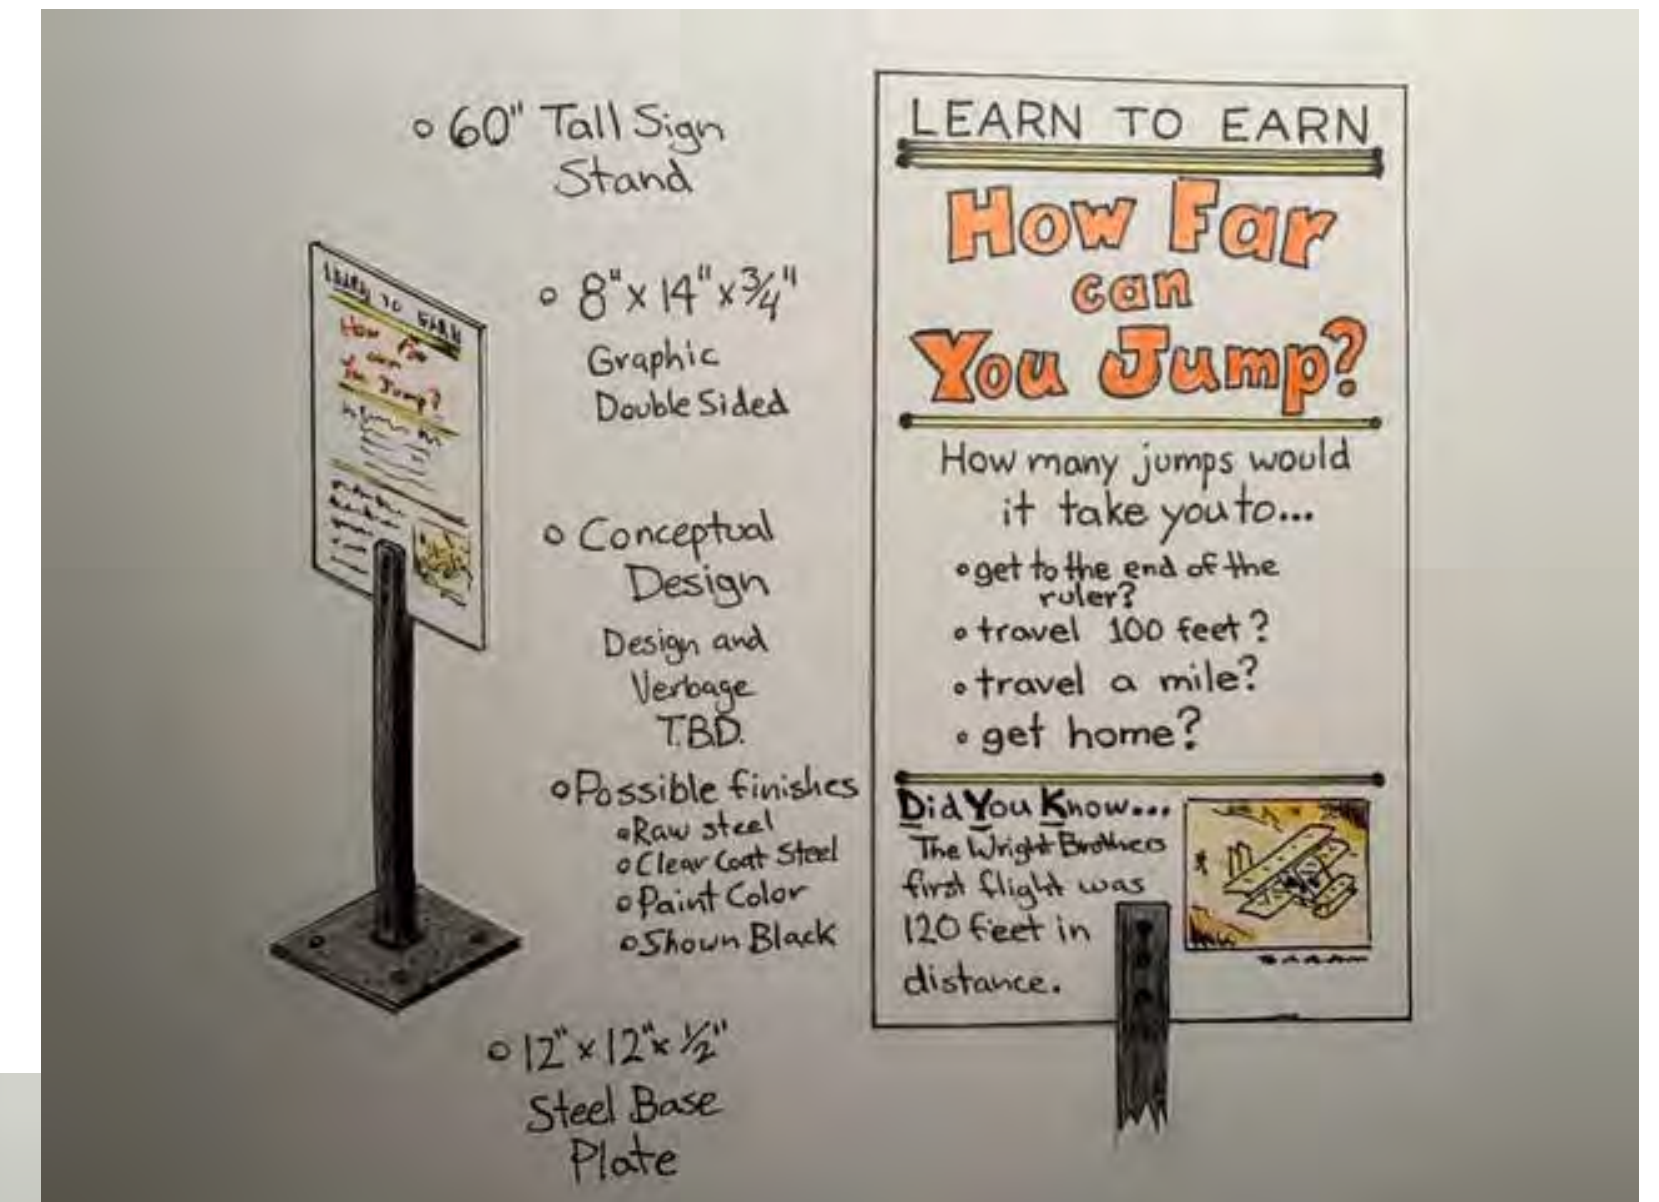 60" Tall Sign
Stand
8" x 14" x 3/4"
Graphic
Double Sided
Conceptual
Design
Design and
Verbage
T.B.D.
Possible finishes
Raw steel
Clear Coat Steel
Paint Color
Shown Black
12" x 12" x 1/2"
Steel Base
Plate
LEARN TO EARN
How Far
can
You Jump?
LEARN TO EARN
How Far
can
You Jump?
How many jumps would
it take you to...
get to the end of the
ruler?
travel 100 feet?
travel a mile?
get home?
Did You Know...
The Wright Brothers
first flight was
120 feet in
distance.